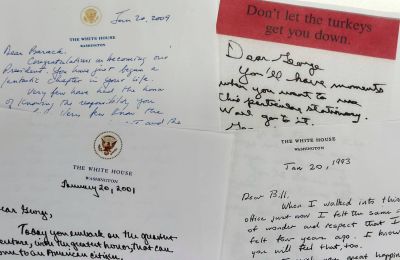 THE WHITE HOUSE
WASHINGTON
Jan 20, 2009
Dear Barack,
Congratulations on becoming our
President. You have just begun a
fantastic chapter in your life.
Very few have had the honor
of knowing the responsibility you
Very few know the
and the
Don't let the turkeys
get you down.
Dear George
You'll have moments
when you want to use
this particular stationery.
Well go to it.
THE WHITE HOUSE
WASHINGTON
January 20, 2001
Dear George,
Today you embark on the greatest
venture, with the greatest honor, that can
come to an American citizen.
THE WHITE HOUSE
WASHINGTON
Jan 20, 1993
Dear Bill,
When I walked into this
office just now I felt the same
of wonder and respect that I
felt four years ago. I know
you will feel that, too.
I wish you great happiness